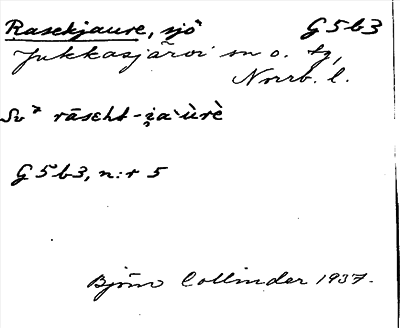 Rasekjaure, sjö G5b3
Jukkasjärvi sn o. tg,
Norrb. l.
Sv> rāseht-i̯a`ùrè
G5b3, n:r 5
Björn Collinder 1937.